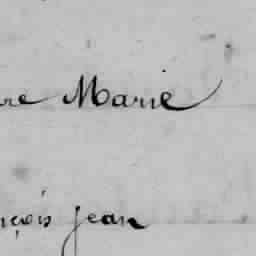 re Marie
nçois jean